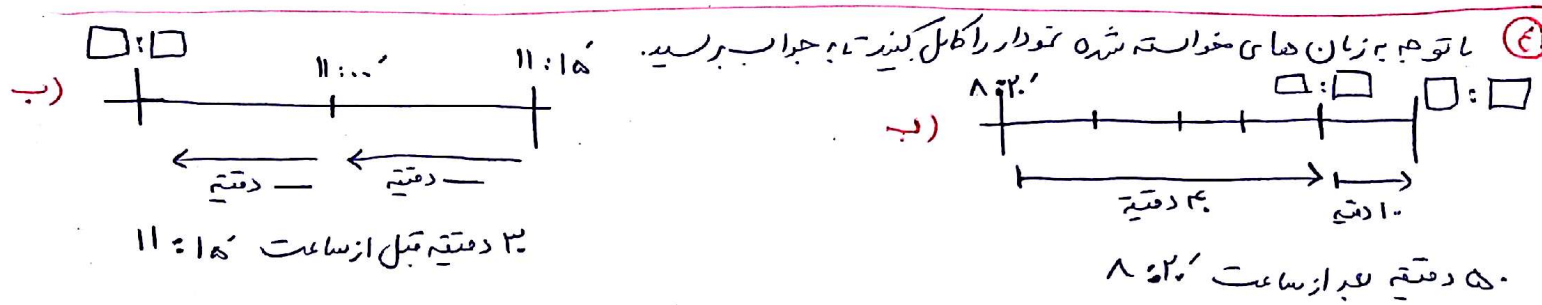 ۴) با توجه به زمان های خواسته شده نمودار را کامل کنید تا به جواب برسید.
ب) ۸:۲۰′ □:□ □:□
۴۰ دقیقه ۱۰ دقیقه
۵۰ دقیقه بعد از ساعت ۸:۲۰′
ب) □:□ ۱۱:۰۰′ ۱۱:۱۵′
— دقیقه — دقیقه
۳۰ دقیقه قبل از ساعت ۱۱:۱۵′